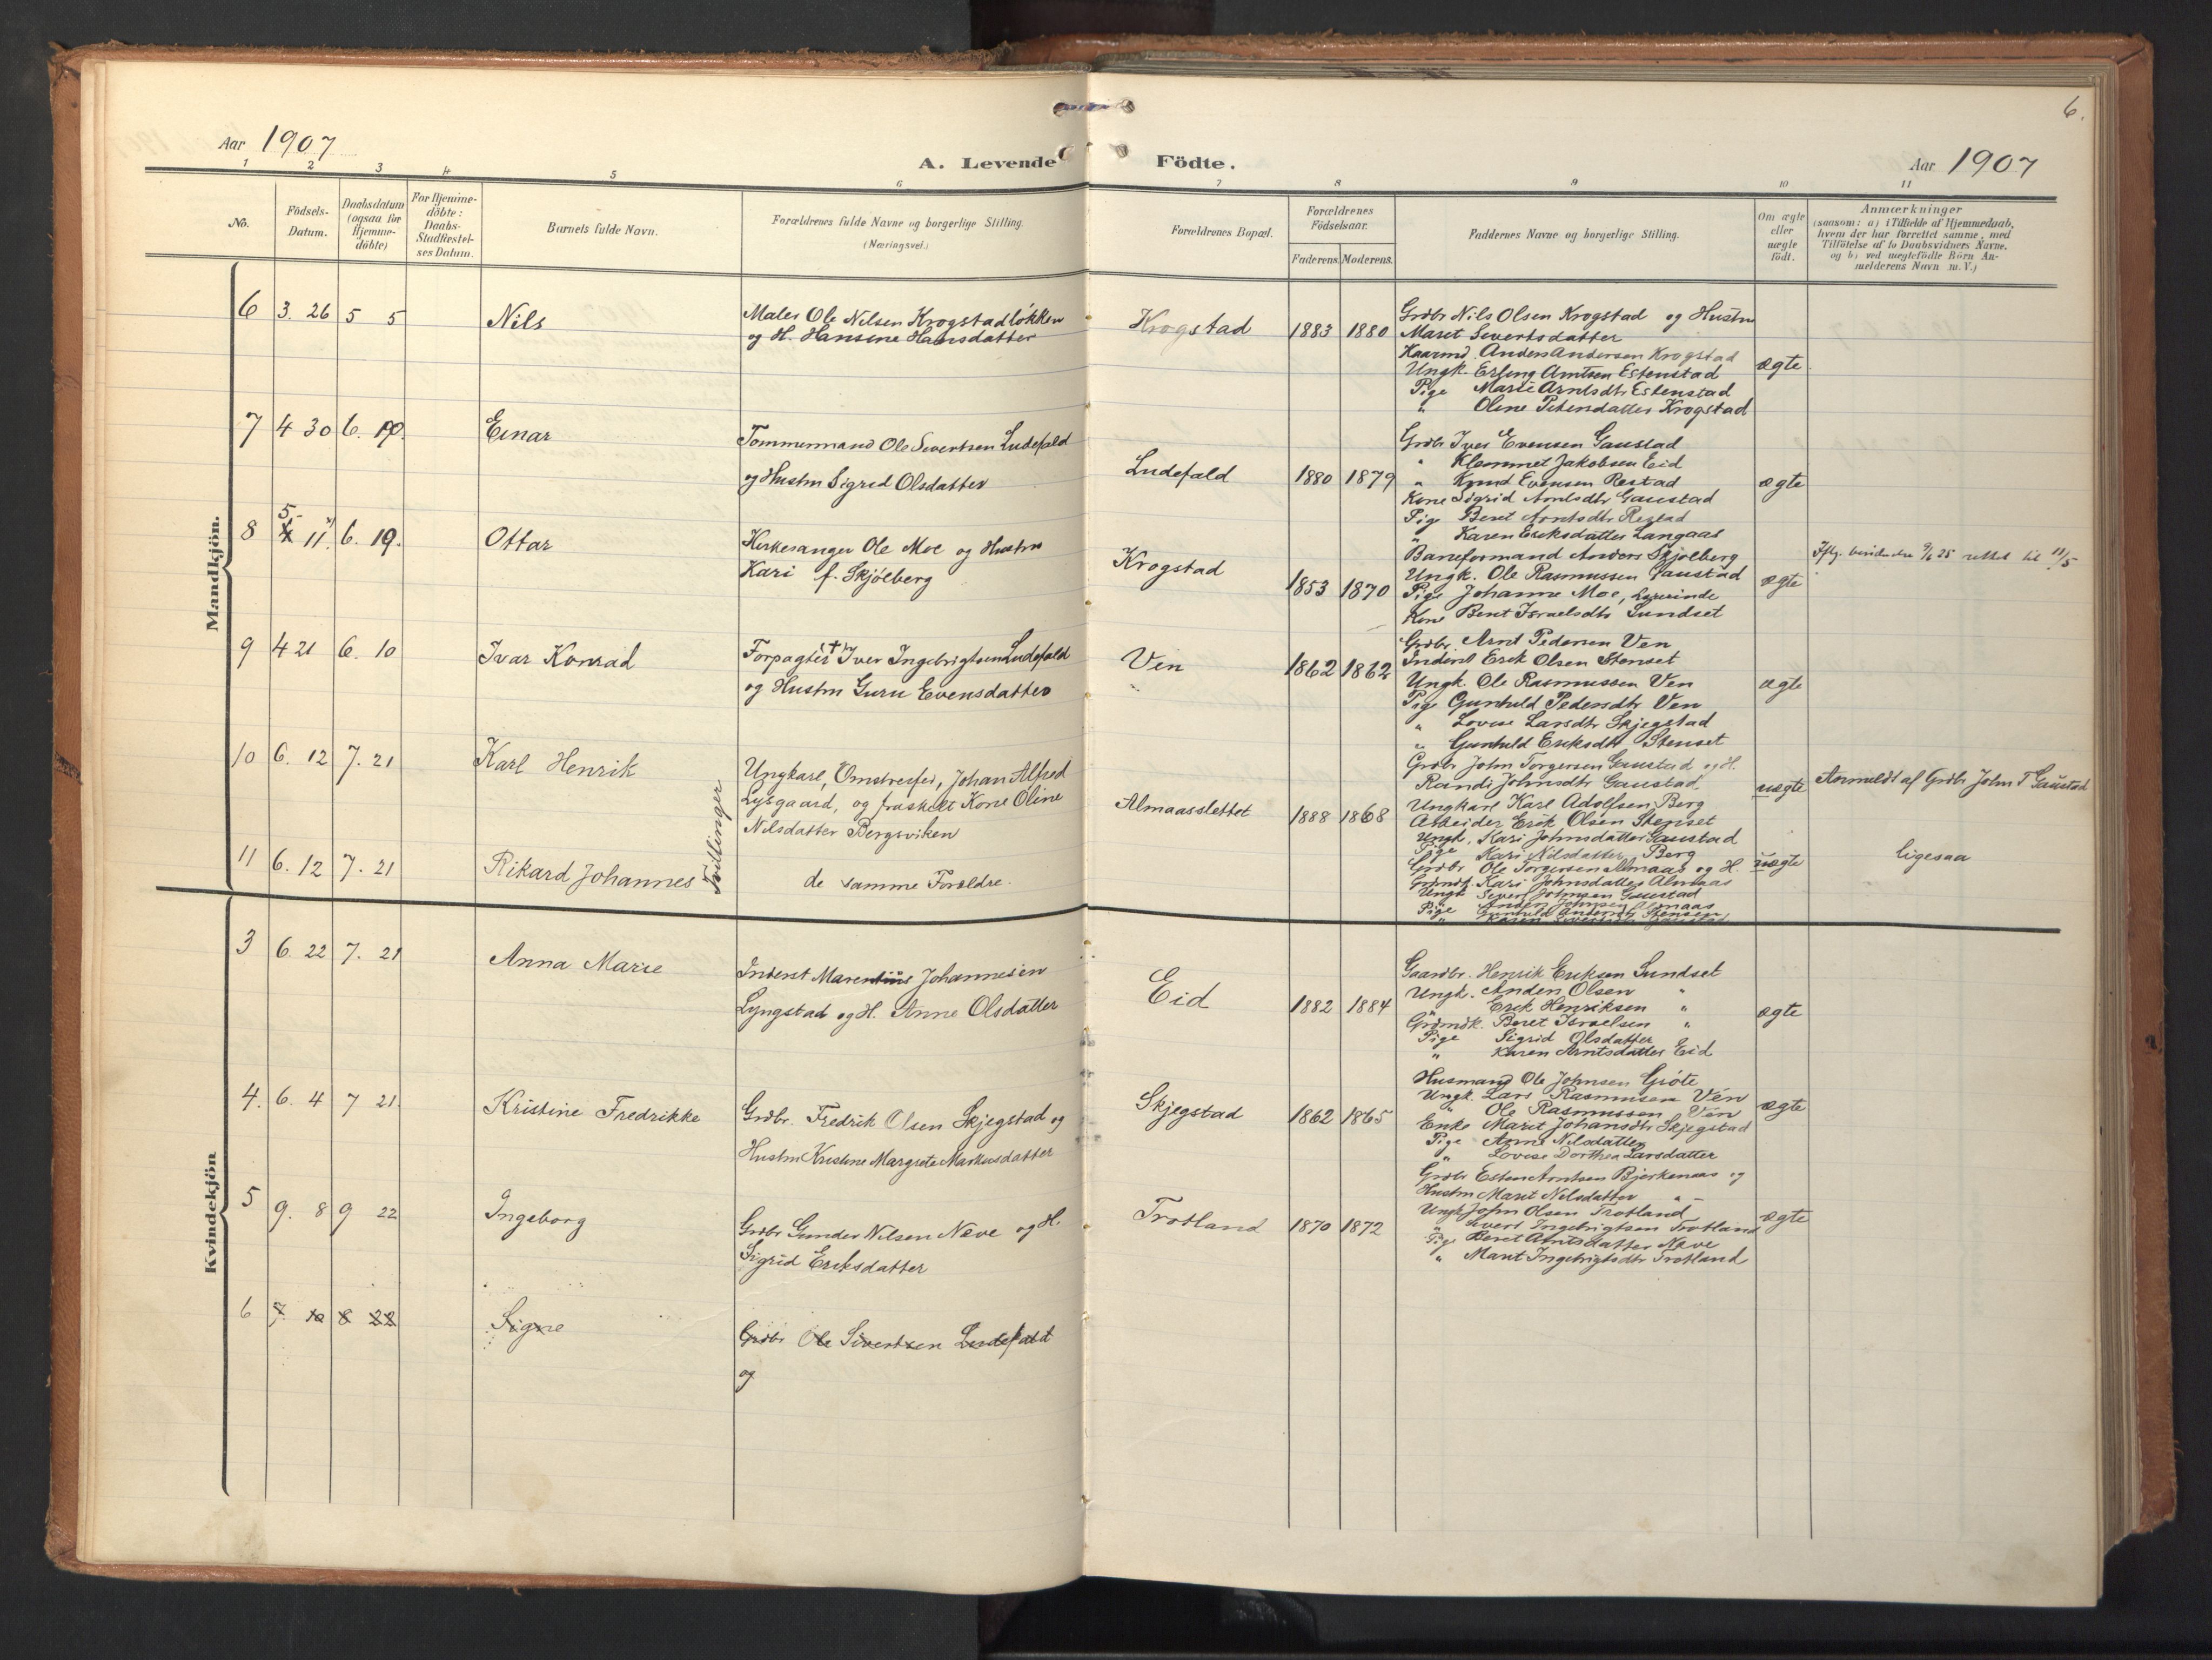 6.
Aar 1907
A. Levende Födte.
Aar 1907
1 2 3 4 5 6 7 8 9 10 11
No.
Födsels-
Datum.
Daabsdatum
(ogsaa for
Hjemme-
döbte)
For Hjemme-
döbte:
Daabs-
Stadfæstel-
ses Datum.
Barnets fulde Navn.
Forældrenes fulde Navne og borgerlige Stilling.
(Næringsvei.)
Forældrenes Bopæl.
Forældrenes
Födselsaar.
Faderens. Moderens.
Faddernes Navne og borgerlige Stilling.
Om ægte
eller
uægte
födt.
Anmærkninger
(saasom: a) i Tilfælde af Hjemmedaab,
hvem der har forrettet samme, med
Tilföielse af to Daabsvidners Navne,
og b) ved uægtefödte Börn An-
melderens Navn m.V.)
Mandkjön.
6 3. 26 5 5 Nils
Maler Ole Nilsen Krogstadløkken
og H. Hansine Hansdatter
Krogstad 1883 1880
Grdbr Nils Olsen Krogstad og Hustru
Maret Sivertsdatter
Kaarmd. Anders Andersen Krogstad
Ungk. Erling Arntsen Estenstad
Pige Marie Arntsdtr Estenstad
" Oline Petersdatter Krogstad
ægte
7 4 30 6. 19. Einar
Tømmermand Ole Sivertsen Ludefald
og Hustru Sigrid Olsdatter
Ludefald 1880 1879
Grdbr Iver Evensen Gaustad
" Klemmet Jakobsen Eid
" Knud Evensen Restad
Kone Sigrid Arntsdtr Gaustad
Pig Beret Arntsdtr Restad
" Karen Eriksdatter Langaas
ægte
8 5. 11. 6. 19. Ottar
Kirkesanger Ole Moe og Hustru
Kari f. Skjølberg
Krogstad 1853 1870
Baneformand Anders Skjølberg
Ungk. Ole Rasmussen Gaustad
Pige Johanne Moe, Lærerinde
Kone Beret Israelsdtr Sundset
ægte
Iflg. 9/6 25 rettet til 11/5
9 4 21 6. 10 Ivar Konrad
Forpagter Iver Ingebrigtsen Ludefald
og Hustru Guru Evensdatter
Ven 1862 1862
Grdbr. Arnt Pedersen Ven
Inderst Erik Olsen Stenset
Ungk. Ole Rasmussen Ven
Pige Gunhild Pedersdtr Ven
" Lovise Larsdtr Skjegstad
" Gunhild Eriksdtr Stenset
ægte
10 6. 12 7. 21 Karl Henrik
Tvillinger
Ungkarl, Omstreifer, Johan Alfred
Lysgaard, og fraskilt Kone Oline
Nilsdatter Bergsviken
Almaasslettet 1888 1868
Grdbr John Torgersen Gaustad og H.
Randi Johnsdtr Gaustad
Ungkarl Karl Adolfsen Berg
Arbeider Erik Olsen Stenset
Ungk. Kari Johnsdatter Gaustad
Pige Kari Nilsdatter Berg
uægte
Anmeldt af Grdbr John T Gaustad
11 6. 12 7. 21 Rikard Johannes
de samme Foræ­ldre.
Grdbr Ole Torgersen Almaas og H.
Kari Johnsdatter Almaas
Ungk Sivert Johnsen Gaustad
" Anders Johnsen Almaas
Pige Gunhild Stenset
uægte
ligesaa
Kvindekjön
3 6. 22 7. 21 Anna Marie
Inderst Marentius Johannesen
Lyngstad og H. Anne Olsdatter
Eid 1882 1884
Gaardbr. Henrik Eriksen Sundset
Ungk. Anders Olsen "
" Erik Henriksen "
Grdmdk. Beret Israelsen "
Pige Sigrid Olsdatter
" Karen Arntsdatter Eid
ægte
4. 6. 4 7 21. Kristine Fredrikke
Grdbr. Fredrik Olsen Skjegstad og
Hustru Kristine Margrete Markusdatter
Skjegstad 1862 1865
Husmand Ole Johnsen Gröte
Ungk. Lars Rasmussen Vén
" Ole Rasmussen Vén
Enke Marit Johansdtr Skjegstad
Pige Anne Nilsdatter
" Lovise Dorthea Larsdatter
ægte
5 9. 8 9 22 Ingeborg
Grdbr Gunder Nilsen Næve og H.
Sigrid Eriksdatter
Trotland 1870 1872
Grdbr Esten Arntsen Bjerkenaas og
Hustru Marit Nilsdatter "
Ungk John Olsen Trotland
" Sivert Ingebrigtsen Trotland
Pige Beret Arntsdatter Næve
" Marit Ingebrigtsdtr Trotland
ægte
6 7 10 8 22 Signe
Grdbr Ole Sivertsen Ludefald
og